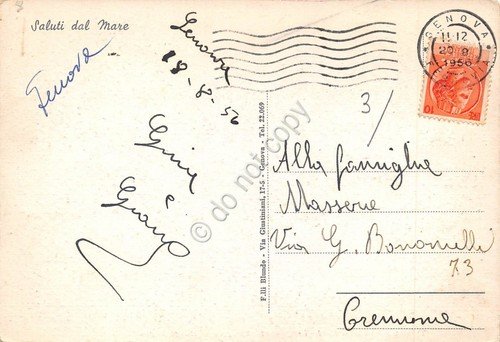 8
Saluti dal Mare
Genova
Genova
18-8-56
Gina
e
F.lli Blundo - Via Giustiniani, 17-5 - Genova - Tel. 22.069
GENOVA
11-12
1956
10
3/
Alla famiglia
Masserie
Via G. Bonomelli
73
Cremona
© do not copy